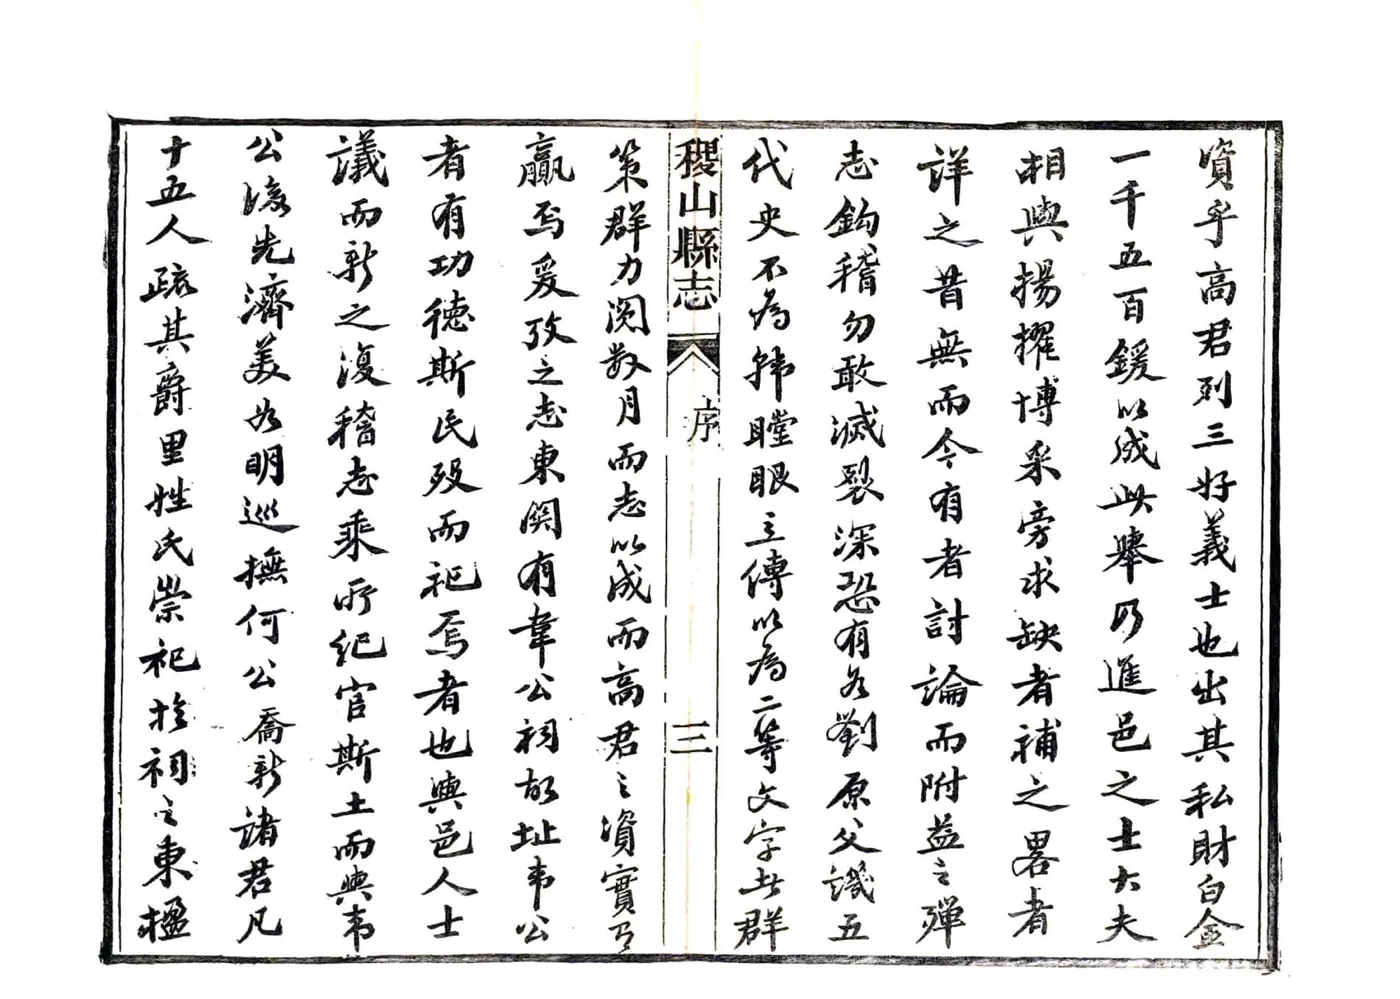 資乎高君列三好義士也出其私財白金
一千五百鍰以成此舉乃進邑之士大夫
相與揚搉博采旁求缺者補之畧者
詳之昔無而今有者討論而附益之殫
志鈎稽勿敢滅裂深恐有如劉原父譏五
代史不為韓瞠眼立傳以為二等文字於群
稷山縣志
序
三
策群力閱數月而志以成而高君之資實有
贏焉爰攷之志東關有韋公祠故址韋公
者有功德斯民歿而祀焉者也與邑人士
議而新之復稽志乘所紀官斯土而與韋
公後先濟美如明巡撫何公喬新諸君凡
十五人疏其爵里姓氏崇祀於祠之東楹